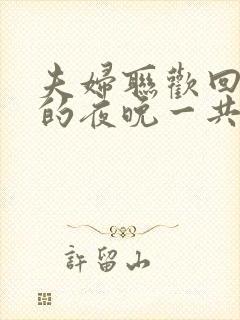 夫婦聯歡回
的夜晚一共
許留山